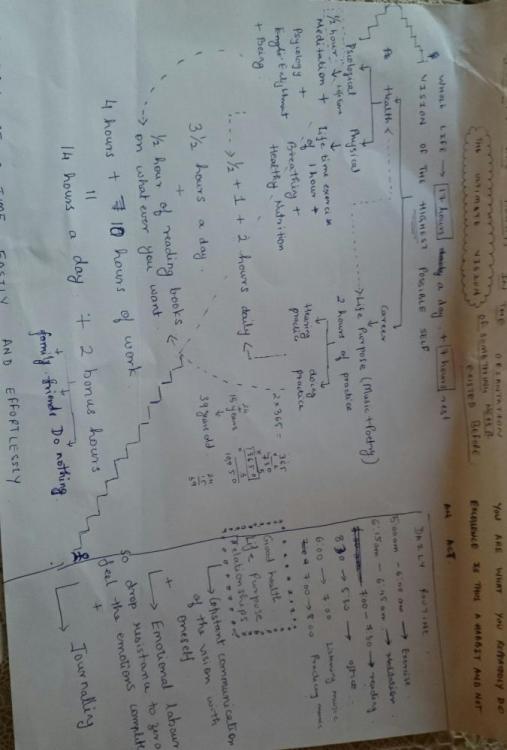 THE ORIENTATION
THE ULTIMATE VISION OF SOMETHING NEVER EXISTED BEFORE
YOU ARE WHAT YOU REPEATEDLY DO
EXCELLENCE IS THUS A HABIT AND NOT
AN ACT
WHOLE LIFE → 17 hours a day + 7 hours rest
VISION OF THE HIGHEST POSSIBLE SELF
Health
Career
Psiological
Physical
Life Purpose (Music + Poetry)
1/2 hour
Meditation +
Life time exercise
of 1 hour +
2 hours of practice
Psycology +
Breathing +
Hearing practice
doing practice
Healthy Nutrition
+ Being
→ 1/2 + 1 + 2 hours daily
3 1/2 hours a day
+
1/2 hour of reading books
on whatever you want.
4 hours + 10 hours of work.
"
14 hours a day + 2 bonus hours
family. friends. Do nothing.
2 x 365 =
365
x 2
730
15 years
39 years old
24
15
39
TIME EASTLY AND EFFORTLESSLY
DAILY ROUTINE
5:00am - 6:00am → Exercise
6:15am - 6:45am → Meditation
7:00 - 7:30 → reading
8:30 → 5:30 → office
6:00 → 7:00 Listening music
7:00 → 8:00 Practicing music
Good health
Life Purpose
Relationships
→ Constant communication
of the vision with
oneself
+
→ Emotional labour
to drop resistance to zero
feel the emotions
+
→ Journalling